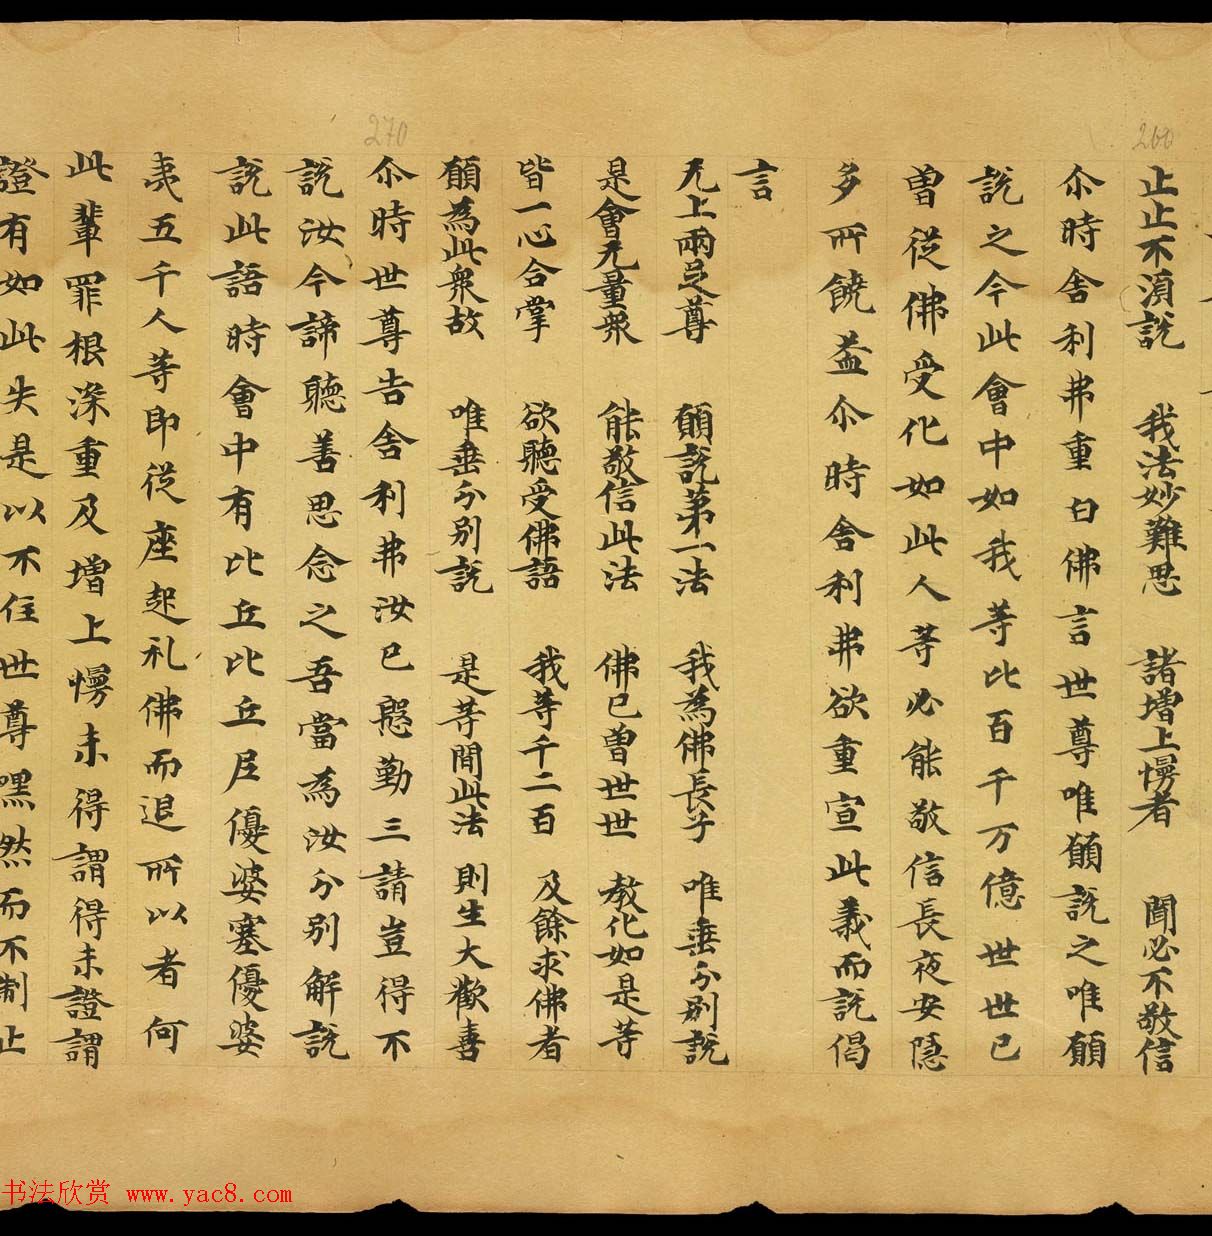 260
270
止止不湏説　我法妙難思　諸增上慢者　聞必不敬信
尒時舍利弗重白佛言世尊唯願説之唯願
説之今此會中如我等比百千万億世世已
曽從佛受化如此人等必能敬信長夜安隱
多所饒益尒時舍利弗欲重宣此義而説偈
言
无上兩足尊　願説第一法　我為佛長子　唯垂分別説
是會无量衆　能敬信此法　佛已曽世世　教化如是等
皆一心合掌　欲聽受佛語　我等千二百　及餘求佛者
願為此衆故　唯垂分別説　是等聞此法　則生大歡喜
尒時世尊告舍利弗汝已慇勤三請豈得不
説汝今諦聽善思念之吾當為汝分別解説
説此語時會中有比丘比丘尼優婆塞優婆
夷五千人等即從座起礼佛而退所以者何
此輩罪根深重及增上慢未得謂得未證謂
證有如此失是以不住世尊嘿然而不制止
书法欣赏 www.yac8.com